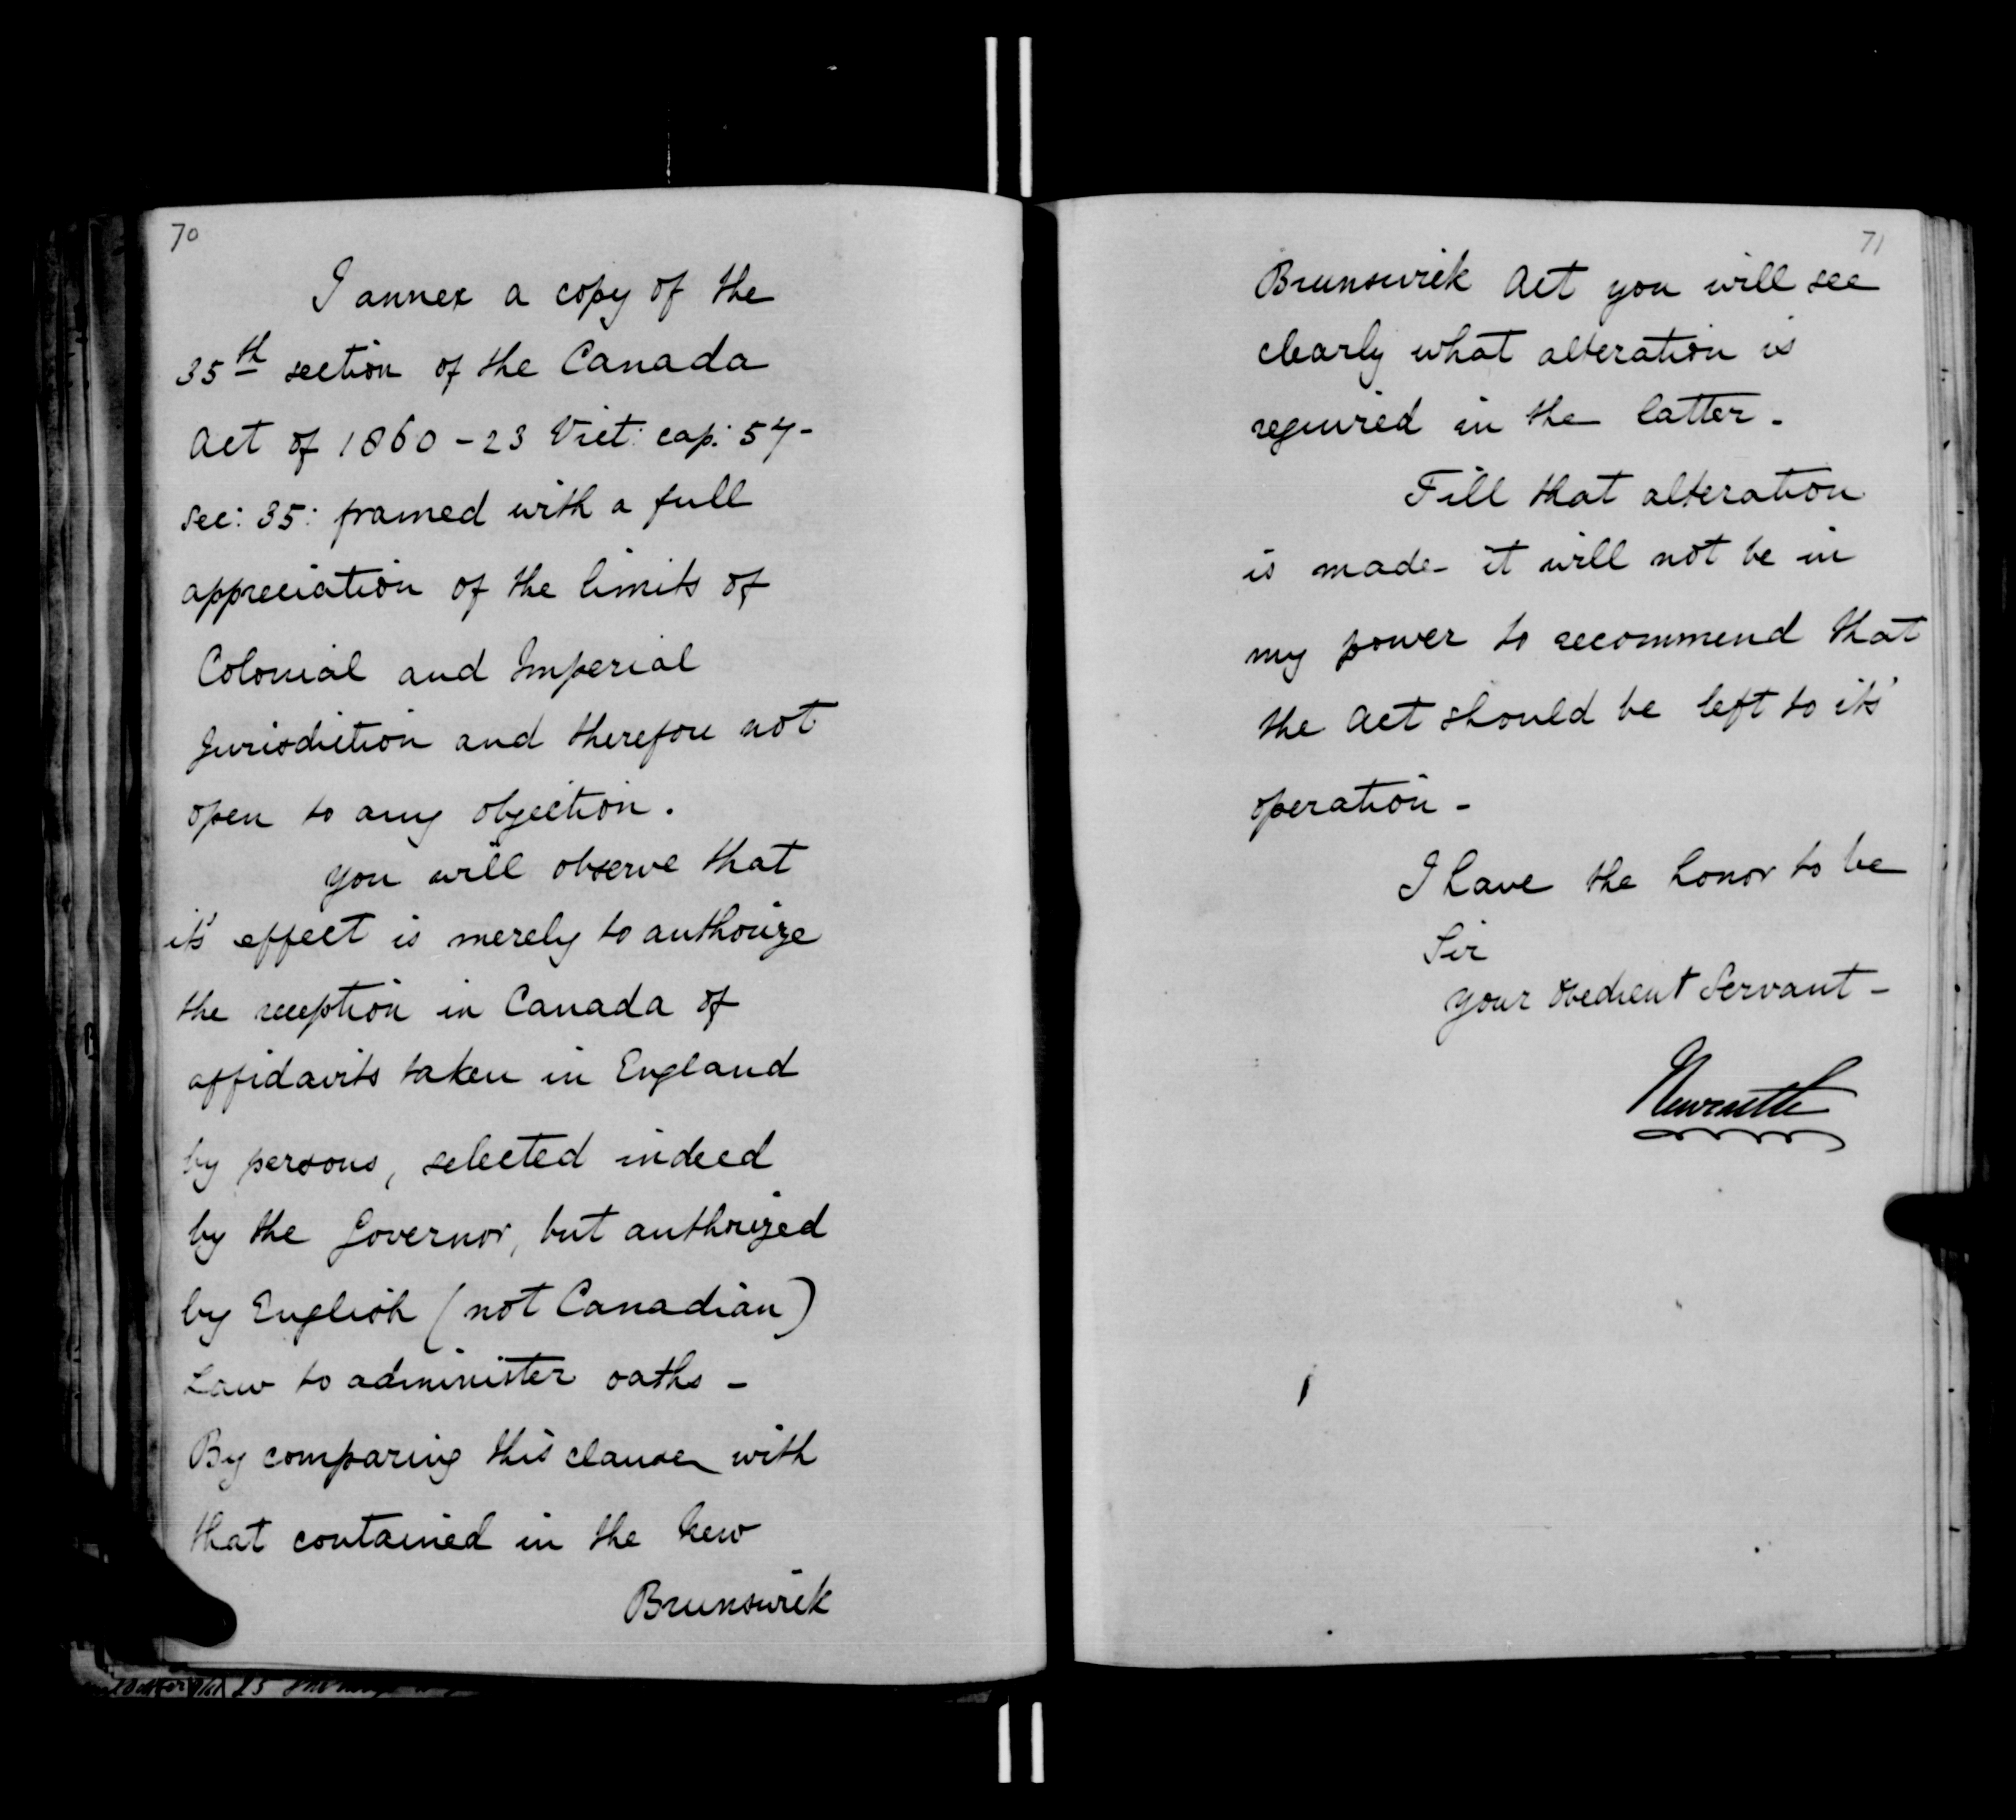 70
I annex a copy of the
35th section of the Canada
Act of 1860 - 23 Vict: cap: 57 -
sec: 35: framed with a full
appreciation of the limits of
Colonial and Imperial
Jurisdiction and therefore not
open to any objection.
You will observe that
it's effect is merely to authorize
the reception in Canada of
affidavits taken in England
by persons, selected indeed
by the Governor, but authorized
by English (not Canadian)
Law to administer oaths -
By comparing this clause with
that contained in the New
Brunswick
71
Brunswick Act you will see
clearly what alteration is
required in the latter -
Till that alteration
is made - it will not be in
my power to recommend that
the Act should be left to it's
operation -
I have the honor to be
Sir
Your Obedient Servant -
Newcastle